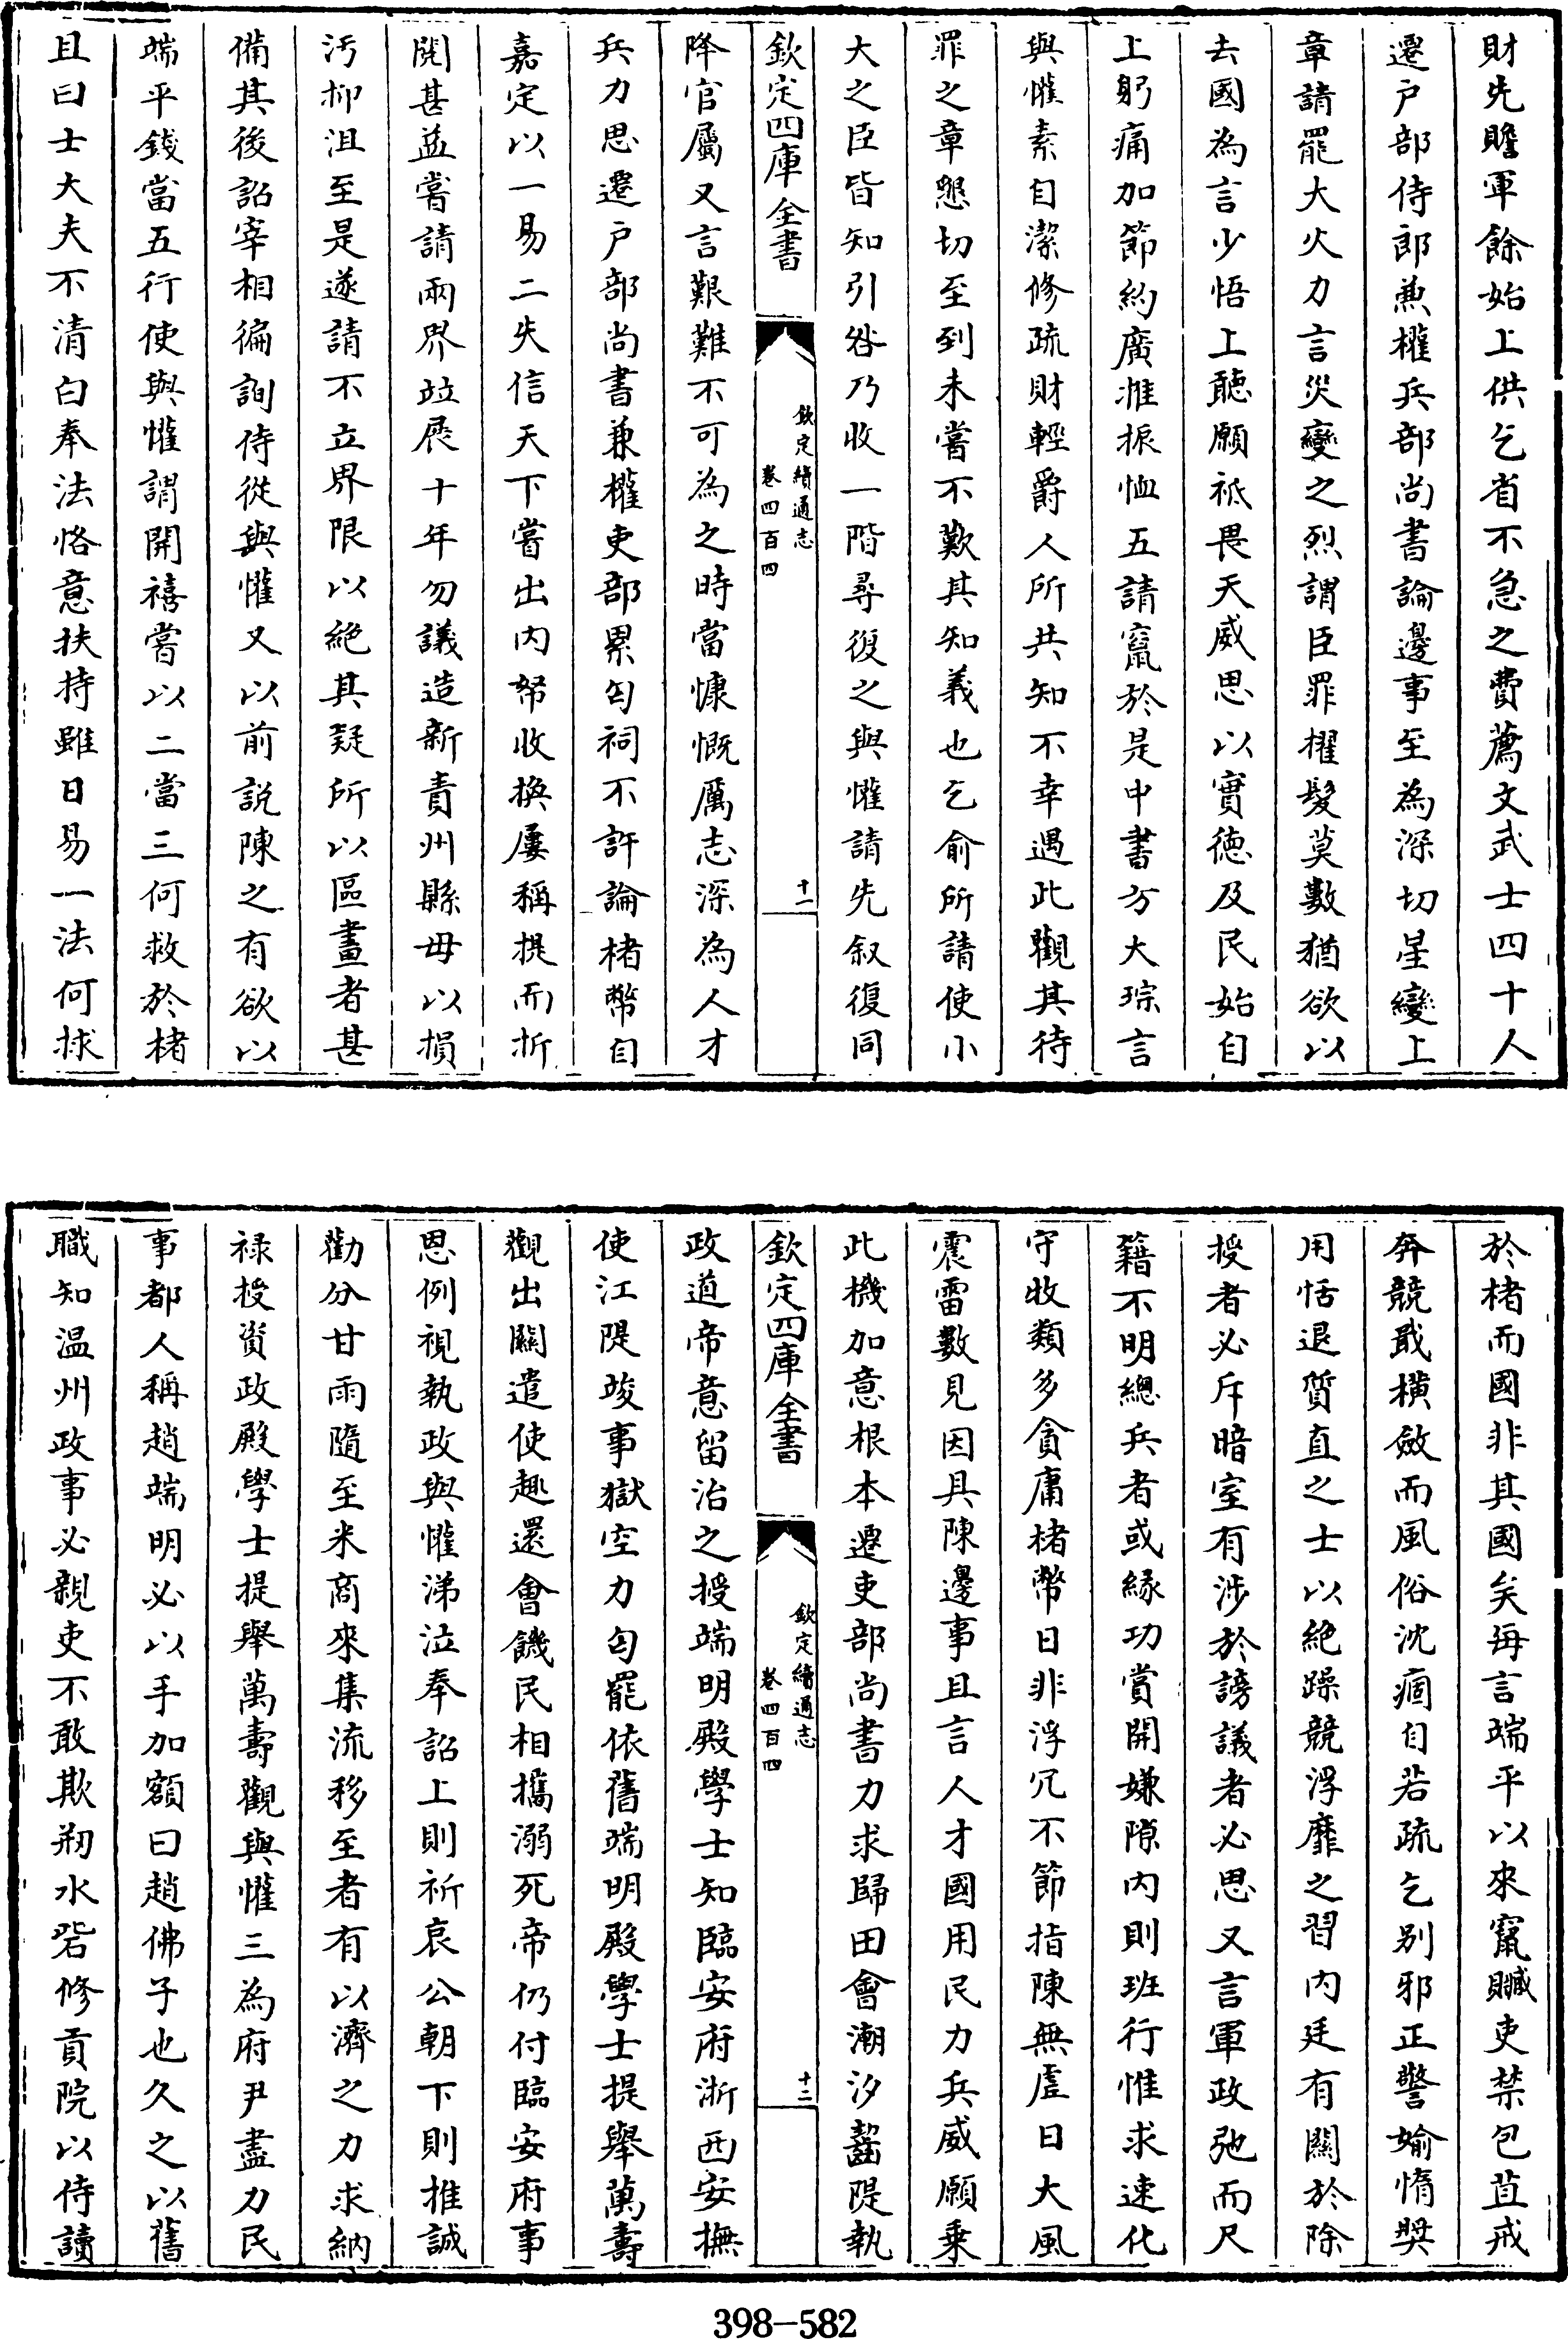 財先贍軍餘始上供乞省不急之費薦文武士四十人
遷户部侍郎兼權兵部尚書論邊事至為深切星變上
章請罷大火力言災變之烈謂臣罪擢髮莫數猶欲以
去國為言少悟上聽願祗畏天威思以實徳及民始自
上躬痛加節約廣推振恤五請竄於是中書方大琮言
與懽素自潔修疏財輕爵人所共知不幸遇此觀其待
罪之章懇切至到未嘗不歎其知義也乞俞所請使小
大之臣皆知引咎乃收一階尋復之與懽請先叙復同
欽定四庫全書
欽定續通志
卷四百四
十一
降官屬又言艱難不可為之時當慷慨厲志深為人才
兵力思遷户部尚書兼權吏部累匄祠不許論楮幣自
嘉定以一易二失信天下嘗出内帑收換屢稱提而折
閲甚益嘗請兩界竝展十年勿議造新責州縣毋以損
汚抑沮至是遂請不立界限以絶其疑所以區畫者甚
備其後詔宰相徧詢侍從與懽又以前説陳之有欲以
端平錢當五行使與懽謂開禧嘗以二當三何救於楮
且曰士大夫不清白奉法恪意扶持雖日易一法何捄
於楮而國非其國矣每言端平以來竄贓吏禁包苴戒
奔競戢横斂而風俗沈痼自若疏乞别邪正警媮惰奬
用恬退質直之士以絶躁競浮靡之習内廷有關於除
授者必斥暗室有涉於謗議者必思又言軍政弛而尺
籍不明總兵者或縁功賞開嫌隙内則班行惟求速化
守收類多貪庸楮幣日非浮冗不節指陳無虚日大風
震雷數見因具陳邊事且言人才國用民力兵威願乗
此機加意根本遷吏部尚書力求歸田會潮汐齧隄執
欽定四庫全書
欽定續通志
卷四百四
十二
政道帝意留治之授端明殿學士知臨安府浙西安撫
使江隄竣事獄空力匄罷依舊端明殿學士提舉萬壽
觀出關遣使趣還會饑民相攜溺死帝仍付臨安府事
恩例視執政與懽涕泣奉詔上則祈哀公朝下則推誠
勸分甘雨隨至米商來集流移至者有以濟之力求納
禄授資政殿學士提舉萬壽觀與懽三為府尹盡力民
事都人稱趙端明必以手加額曰趙佛子也久之以舊
職知温州政事必親吏不敢欺剏水砦修貢院以侍讀
398-582